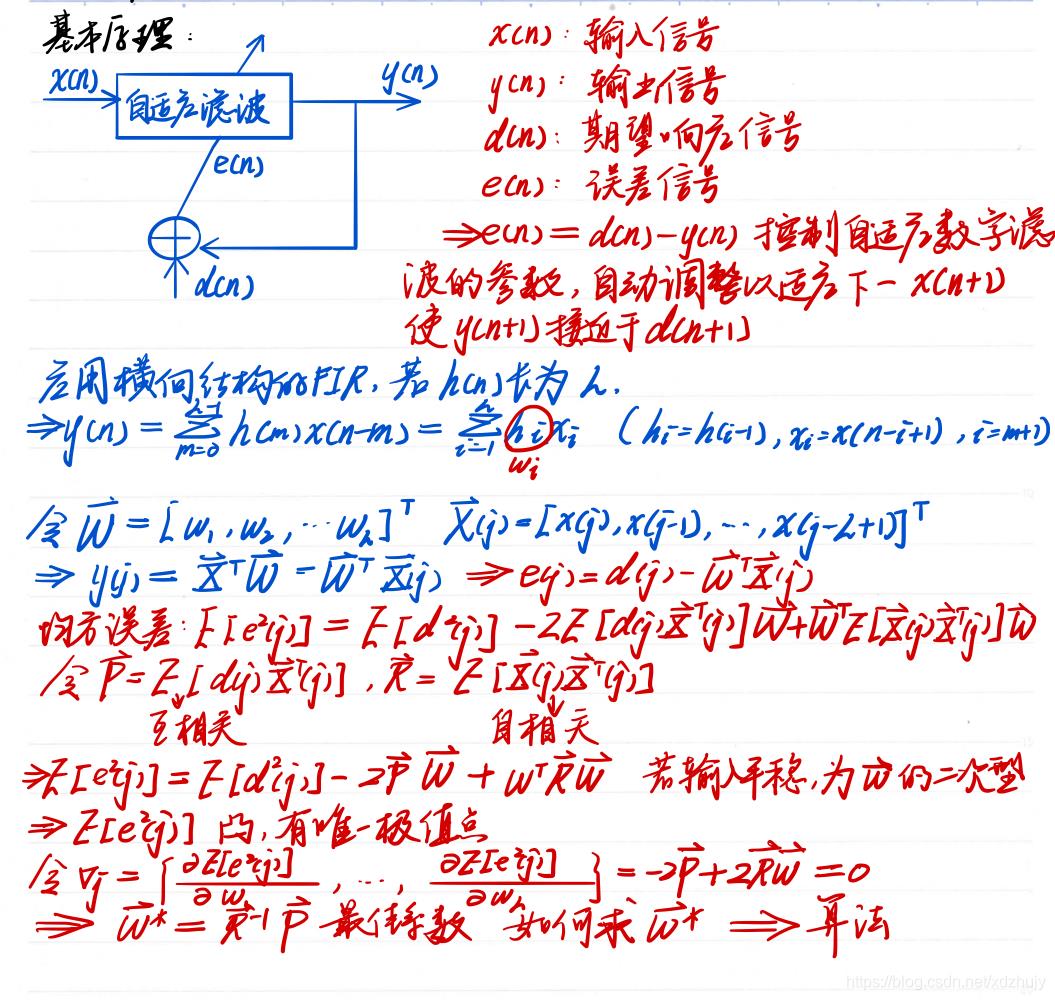 基本原理:
x(n)
自适应滤波
y(n)
e(n)
d(n)
x(n): 输入信号
y(n): 输出信号
d(n): 期望响应信号
e(n): 误差信号
⇒e(n) = d(n)-y(n) 控制自适应数字滤
波的参数,自动调整以适应下一 x(n+1)
使 y(n+1)接近于d(n+1)
应用横向结构的FIR,若 h(n)长为 L.
⇒y(n) = ∑_{m=0}^{L-1} h(m)x(n-m) = ∑_{i=1}^{L} h_i x_i (h_i=h(i-1), x_i=x(n-i+1), i=m+1)
w_i
令 \vec{W} = [w_1, w_2, ⋯ w_L]^T \vec{X}(j)=[x(j), x(j-1), ⋯, x(j-L+1)]^T
⇒ y(j) = \vec{X}^T\vec{W} = \vec{W}^T\vec{X}(j) ⇒ e(j)=d(j)-\vec{W}^T\vec{X}(j)
均方误差: E[e²(j)] = E[d²(j)] -2E[d(j)\vec{X}^T(j)]\vec{W}+\vec{W}^TE[\vec{X}(j)\vec{X}^T(j)]\vec{W}
令 \vec{P}= E[d(j)\vec{X}^T(j)], \vec{R} = E[\vec{X}(j)\vec{X}^T(j)]
互相关 自相关
⇒E[e²(j)] = E[d²(j)] - 2\vec{P}\vec{W} + w^T\vec{R}\vec{W} 若输入平稳,为\vec{w}的二次型
⇒ E[e²(j)] 凸,有唯一极值点
令 ∇_j = {∂E[e²(j)]/∂w_1, ⋯, ∂E[e²(j)]/∂w_L} = -2\vec{P}+2\vec{R}\vec{W} = 0
⇒ \vec{W}* = \vec{R}^{-1}\vec{P} 最佳系数 如何求 \vec{W}* ⇒ 算法
https://blog.csdn.net/xdzhujy